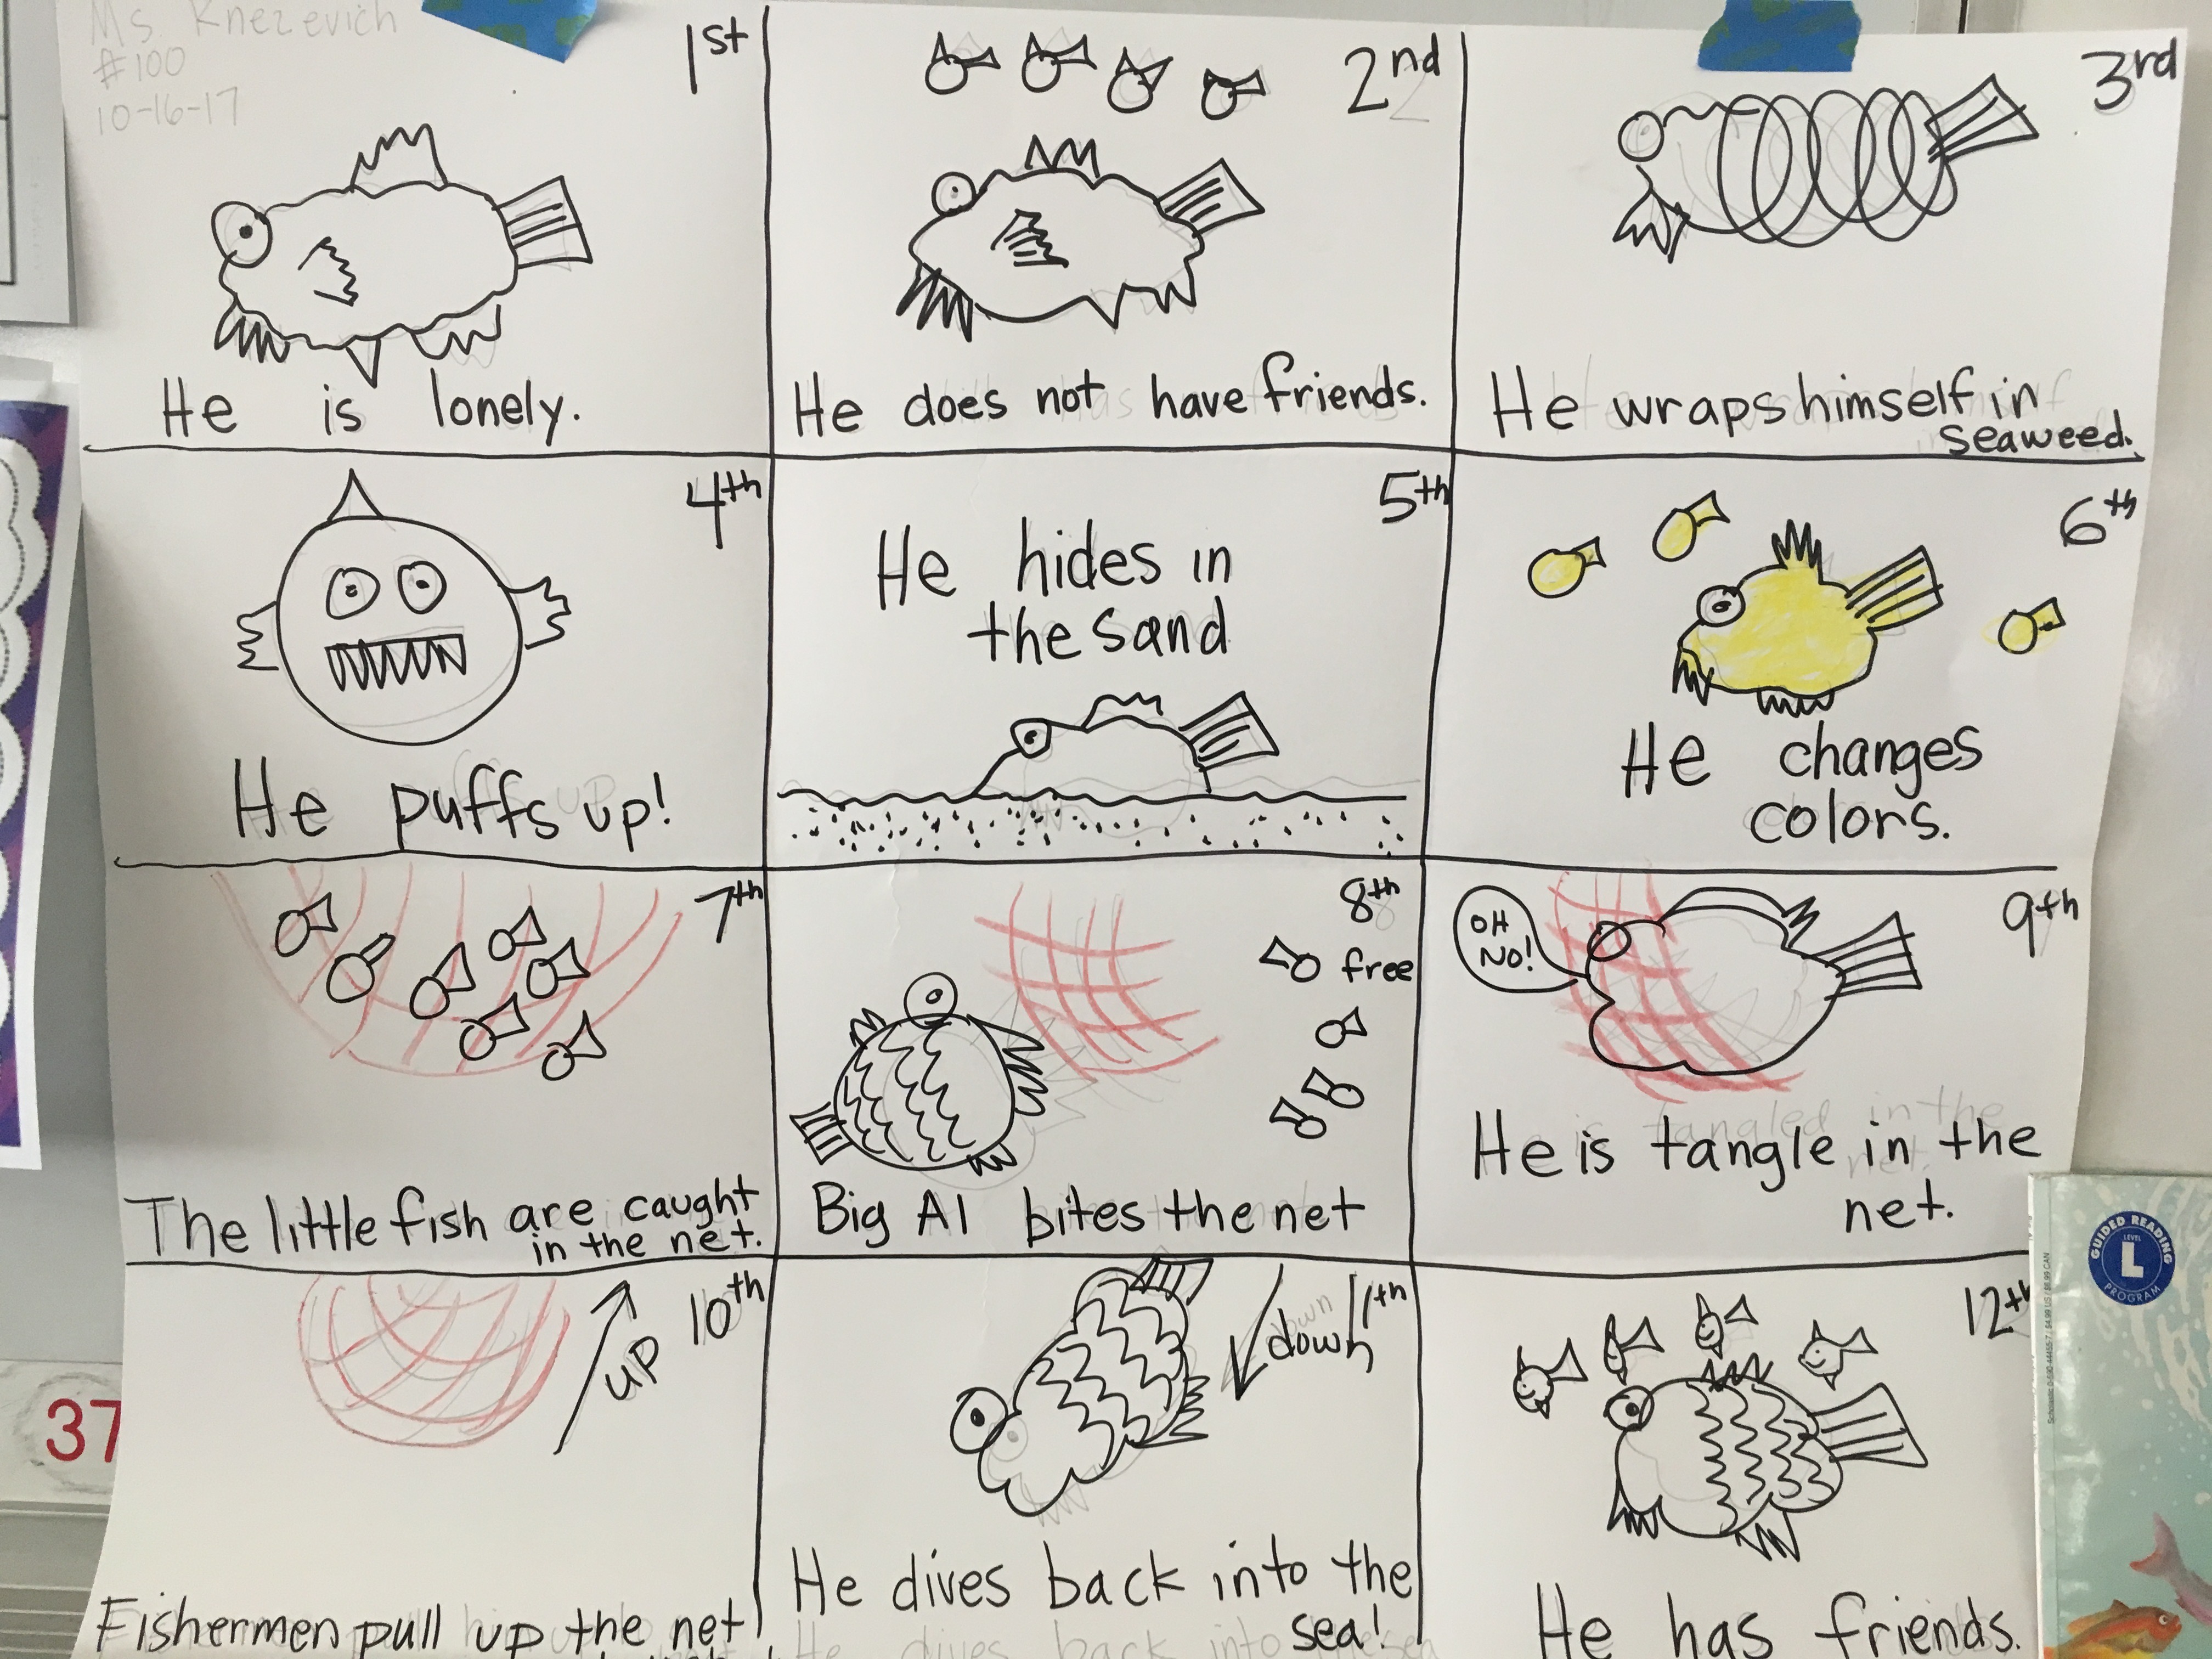 Ms. Knezevich
#100
10-16-17
1st
He is lonely.
2nd
He does not have friends.
3rd
He wraps himself in
seaweed.
4th
He puffs up!
5th
He hides in
the sand
6th
He changes
colors.
7th
The little fish are caught
in the net.
8th
free
Big Al bites the net
9th
OH
NO!
He is tangle in the
net.
10th
up
Fishermen pull up the net
11th
down
He dives back into the
sea!
12th
He has friends.
37
GUIDED READING
LEVEL
L
PROGRAM